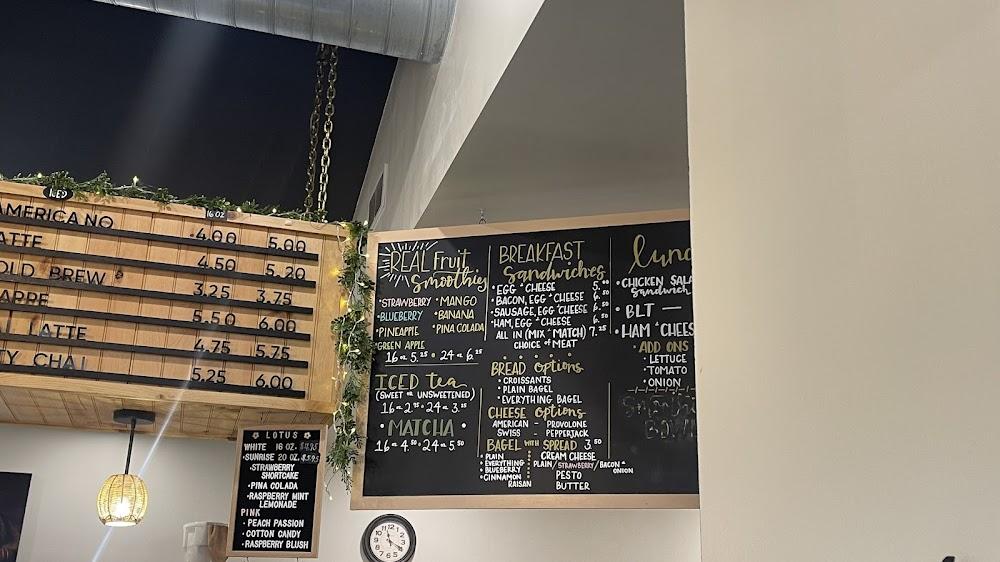 ICED
16 OZ
AMERICANO 4.00 5.00
ATTE 4.50 5.20
OLD BREW 3.25 3.75
APPE 5.50 6.00
LATTE 4.75 5.75
TY CHAI 5.25 6.00
LOTUS
WHITE 16 OZ.
SUNRISE 20 OZ.
•STRAWBERRY
SHORTCAKE
•PINA COLADA
•RASPBERRY MINT
LEMONADE
PINK
•PEACH PASSION
•COTTON CANDY
•RASPBERRY BLUSH
REAL Fruit
Smoothies
•STRAWBERRY •MANGO
•BLUEBERRY •BANANA
•PINEAPPLE •PINA COLADA
•GREEN APPLE
16oz 5.25 • 24oz 6.25
ICED tea
(SWEET OR UNSWEETENED)
16oz 2.75 • 24oz 3.15
• MATCHA •
16oz 4.50 • 24oz 5.50
BREAKFAST
Sandwiches
•EGG & CHEESE 5.00
•BACON, EGG & CHEESE 6.50
•SAUSAGE, EGG & CHEESE 6.50
•HAM, EGG & CHEESE 6.50
ALL IN (MIX & MATCH) 7.25
CHOICE of MEAT
BREAD options
•CROISSANTS
•PLAIN BAGEL
•EVERYTHING BAGEL
CHEESE options
AMERICAN - PROVOLONE
SWISS - PEPPERJACK
BAGEL WITH SPREAD 3.50
•PLAIN
•EVERYTHING
•BLUEBERRY
•CINNAMON
RAISAN
CREAM CHEESE
PLAIN/STRAWBERRY/BACON &
ONION
PESTO
BUTTER
lunc
•CHICKEN SALA
Sandwich
•BLT —
•HAM & CHEES
•ADD ONS
•LETTUCE
•TOMATO
•ONION